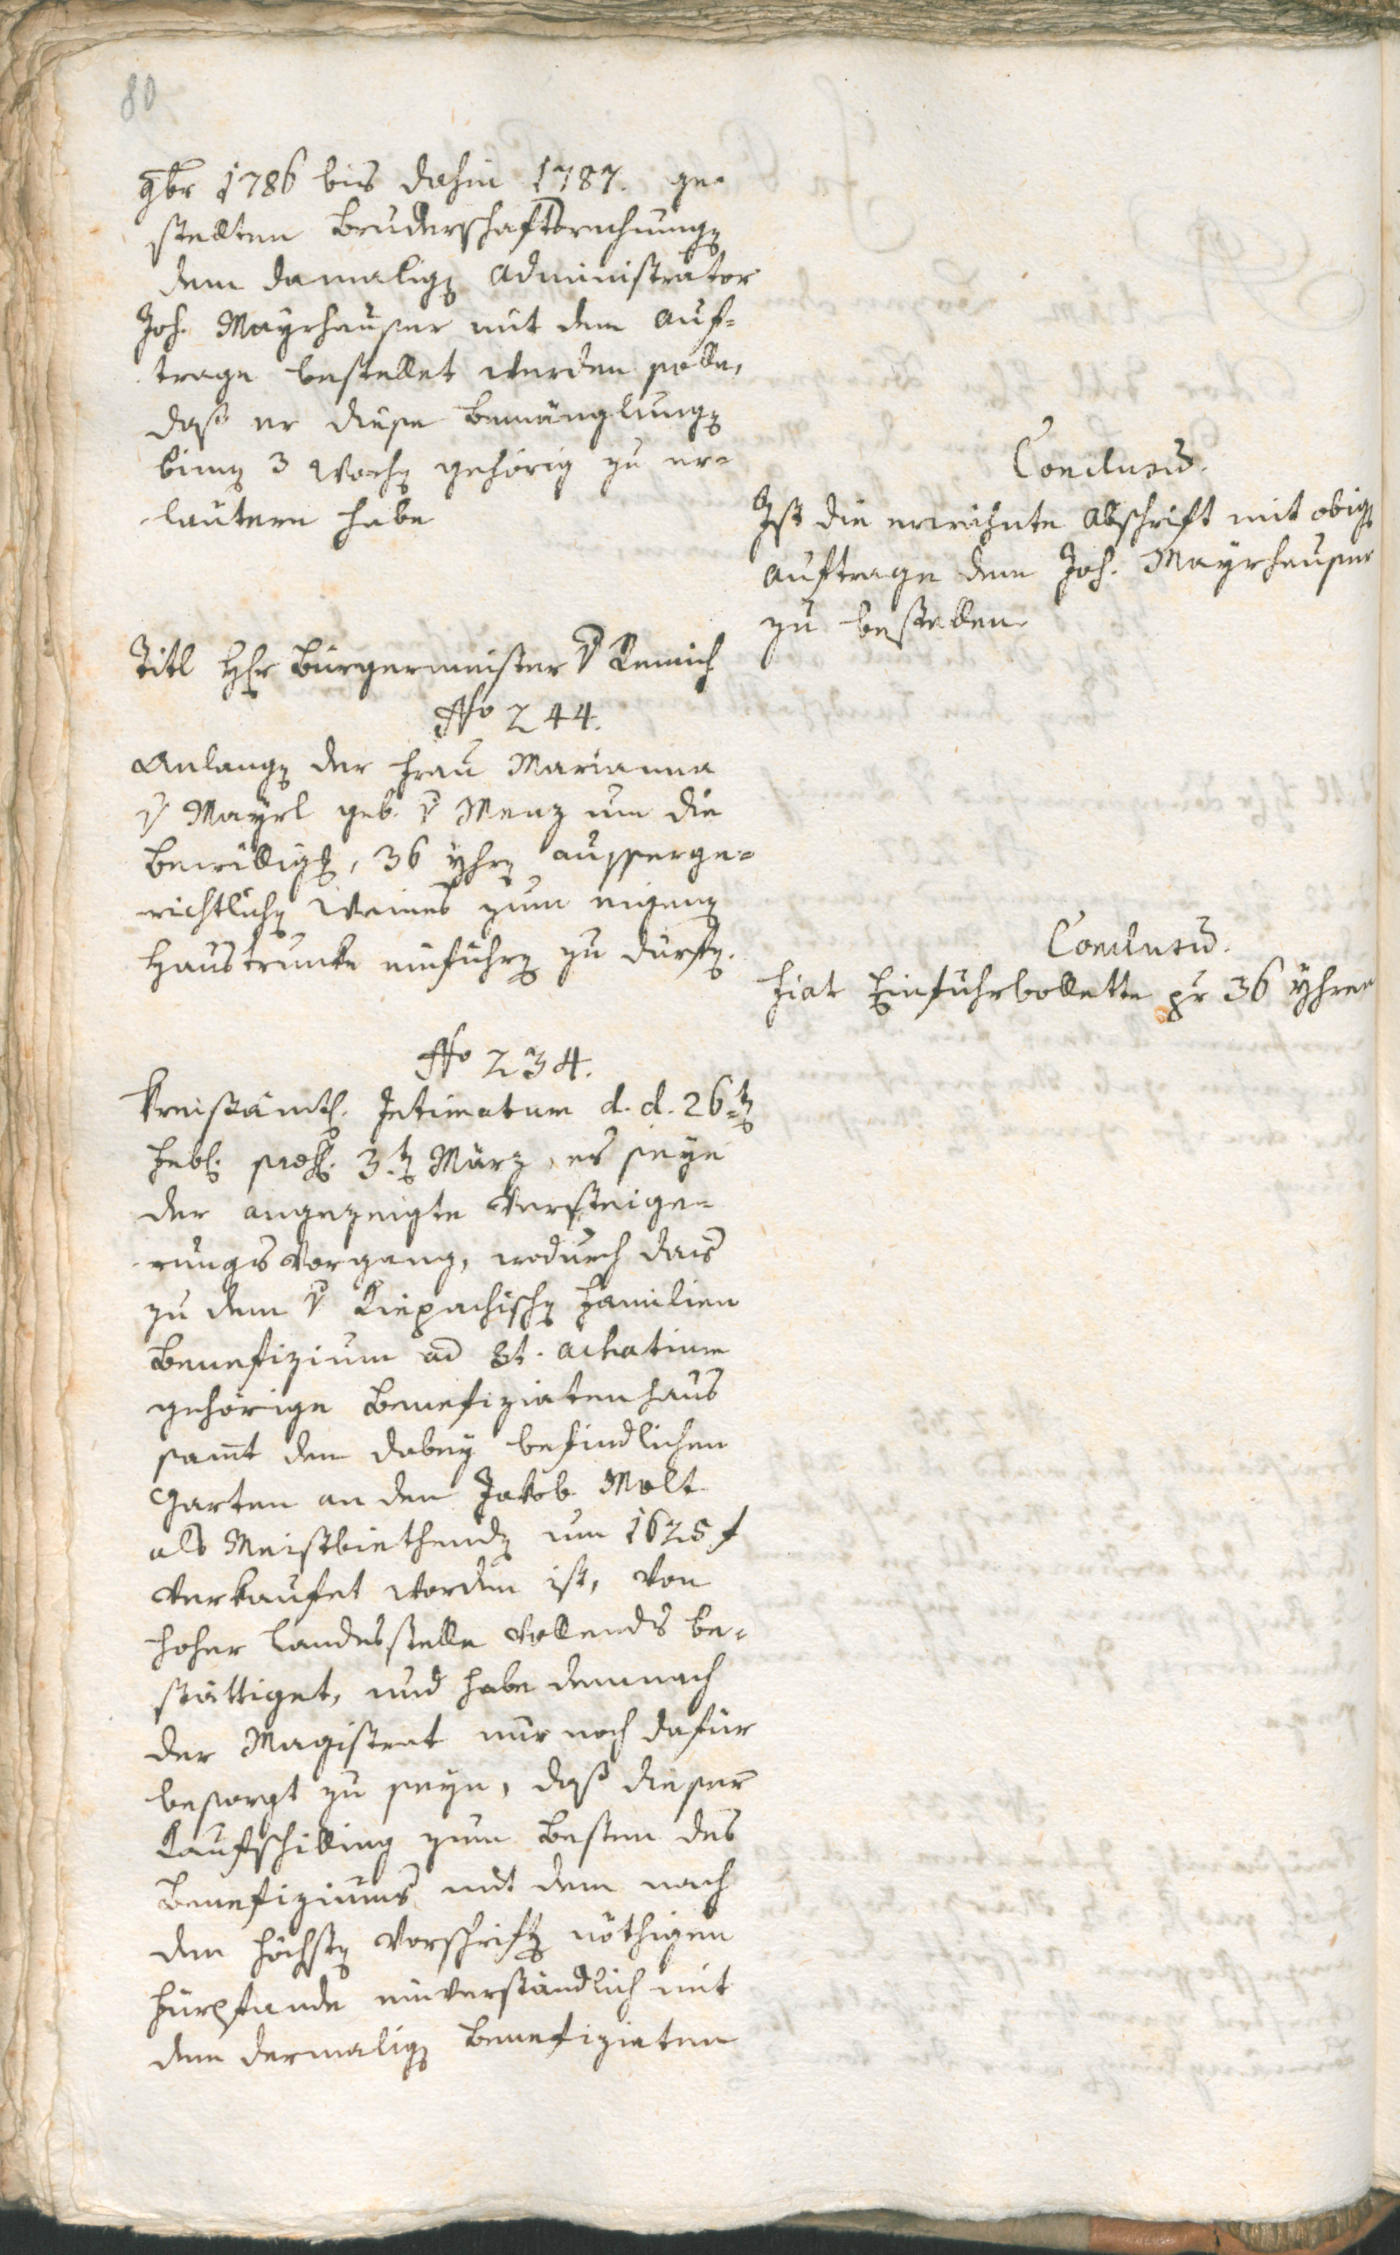 80
9br 1786 bis dahin 1787. ge-
stellten Bruderschaftsrechnung
dem damalig Administrator
Joh. Mayrhauser mit dem Auf-
trage bestellet werden solle,
daß er diese Bemänglung
bin 3 Woch gehörig zu er-
läutern habe
Conclusū.
Ist die erwähnte Abschrift mit obig
Auftrage dem Joh. Mayrhauser
zu bestellen.
Titl Hr Bürgermeister v Remich
No 244.
Anlang der Frau Marianna
v Mayrl geb. v Menz um die
Bewillig, 36 Yhrn ausserge-
richtlich Weines zum eigen
Haustrunke einführ zu dürf.
Conclusū.
Fiat Einfuhrbollette pr 36 Yhren
No 234.
Kreisämtl. Intimatum d. d. 26t
Febl. prs. 3t März, es seye
der angezeigte Versteige-
rungs Vorgang, wodurch das
zu dem v Kiepachisch Familien
Benefizium ad St. Achatium
gehörige Benefiziatenhaus
samt dem dabey befindlichen
Garten an den Jakob Molt
als Meistbiethend um 1625 f
verkaufet worden ist, von
hoher Landesstelle vollends be-
stättiget, und habe demnach
der Magistrat nur noch dafür
besorgt zu seyn, daß dieser
Kaufschilling zum Besten des
Benefiziums mit dem nach
den höchst Vorschrift nöthigen
Fürpfande einverständlich mit
dem dermalig Benefiziaten